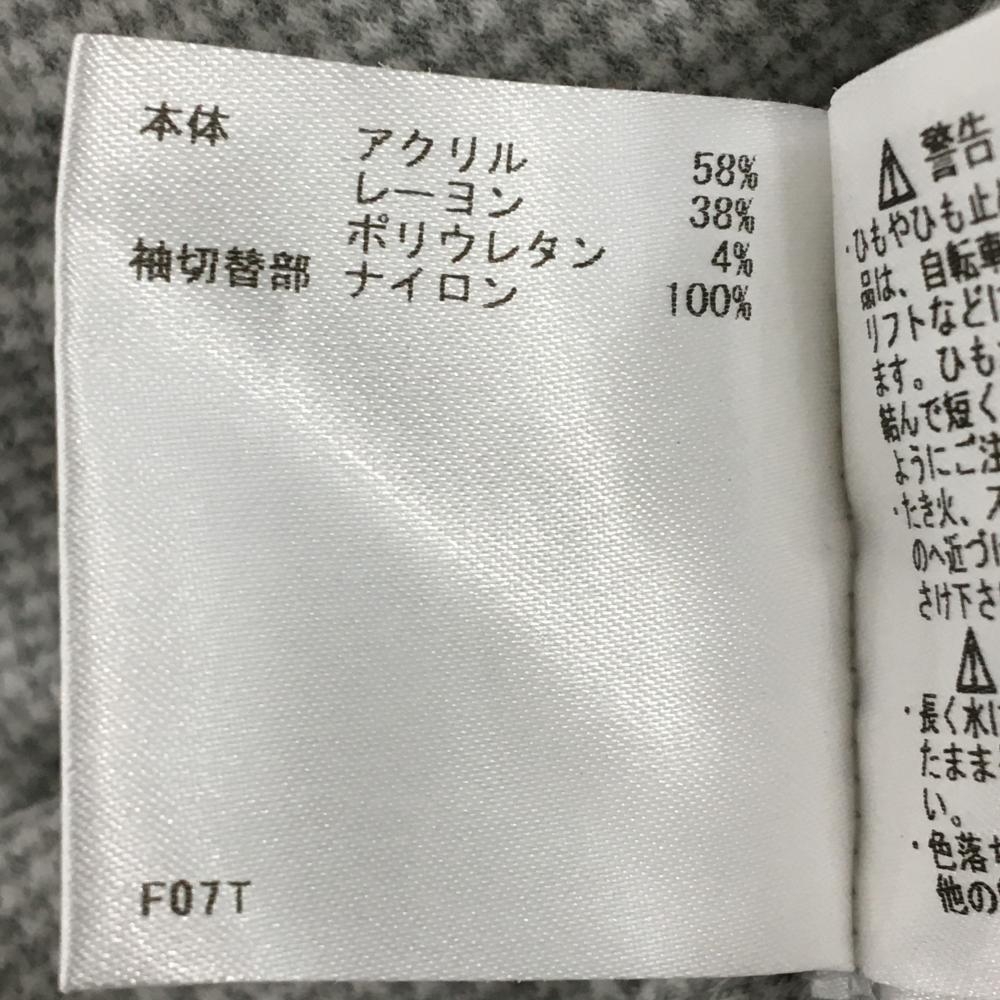 本体 アクリル 58%
レーヨン 38%
ポリウレタン 4%
袖切替部 ナイロン 100%
F07T
⚠ 警告
・ひもやひも止
品は、自転車
リフトなどに
ます。ひも
結んで短く
ようにご注
・たき火、ス
のへ近づけ
さけ下さ
⚠
・長く水に
たまま
い。
・色落ち
他の